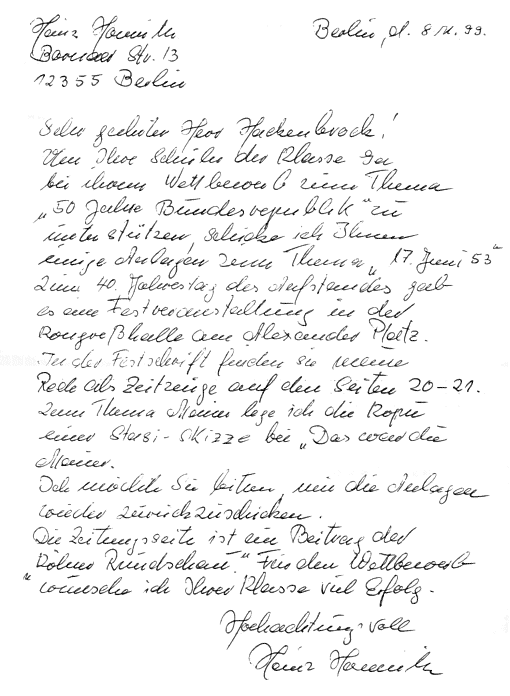 Heinz Homuth Berlin, d. 8.11.99.
Str. 13
12355 Berlin
Sehr geehrter Herr Hackenbrock!
Um Ihre Schüler der Klasse 9a
bei ihrem Wettbewerb zum Thema
„50 Jahre Bundesrepublik" zu
unterstützen, schicke ich Ihnen
einige Anlagen zum Thema „17. Juni 53"
Zum 40. Jahrestag des Aufstandes gab
es eine Festveranstaltung in der
Kongreßhalle am Alexander Platz.
In der Festschrift finden sie meine
Rede als Zeitzeuge auf den Seiten 20-21.
Zum Thema Mauer lege ich die Kopie
einer Stasi-Skizze bei „Das war die
Mauer.
Ich möchte Sie bitten, mir die Anlagen
wieder zurückzuschicken.
Die Zeitungsseite ist ein Beitrag der
„Kölner Rundschau". Für den Wettbewerb
wünsche ich Ihrer Klasse viel Erfolg.
Hochachtungsvoll
Heinz Homuth